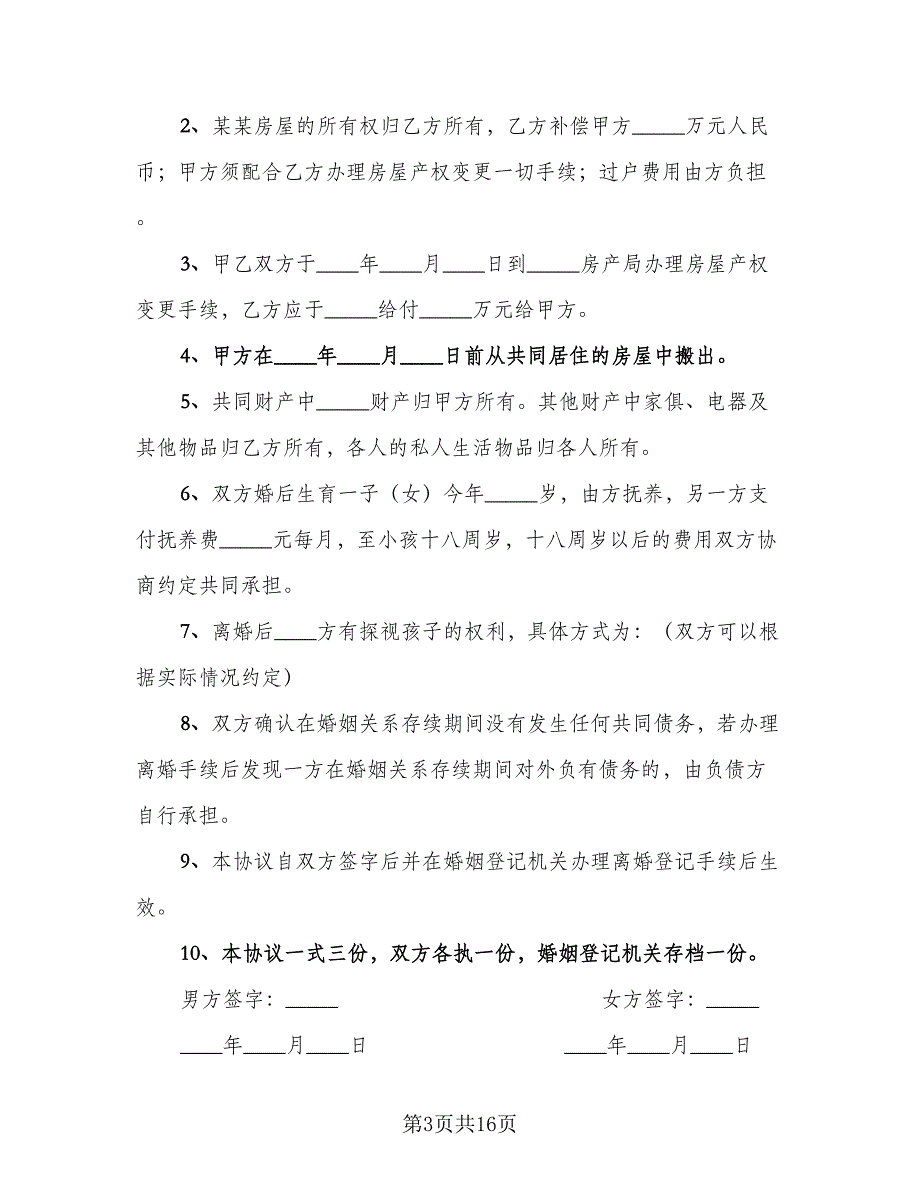 2、某某房屋的所有权归乙方所有，乙方补偿甲方_____万元人民
币；甲方须配合乙方办理房屋产权变更一切手续；过户费用由方负担
。
3、甲乙双方于____年____月____日到_____房产局办理房屋产权
变更手续，乙方应于_____给付_____万元给甲方。
4、甲方在____年____月____日前从共同居住的房屋中搬出。
5、共同财产中_____财产归甲方所有。其他财产中家俱、电器及
其他物品归乙方所有，各人的私人生活物品归各人所有。
6、双方婚后生育一子（女）今年_____岁，由方抚养，另一方支
付抚养费_____元每月，至小孩十八周岁，十八周岁以后的费用双方协
商约定共同承担。
7、离婚后____方有探视孩子的权利，具体方式为：（双方可以根
据实际情况约定）
8、双方确认在婚姻关系存续期间没有发生任何共同债务，若办理
离婚手续后发现一方在婚姻关系存续期间对外负有债务的，由负债方
自行承担。
9、本协议自双方签字后并在婚姻登记机关办理离婚登记手续后生
效。
10、本协议一式三份，双方各执一份，婚姻登记机关存档一份。
男方签字：_____ 女方签字：_____
____年____月____日 ____年____月____日
第3页共16页